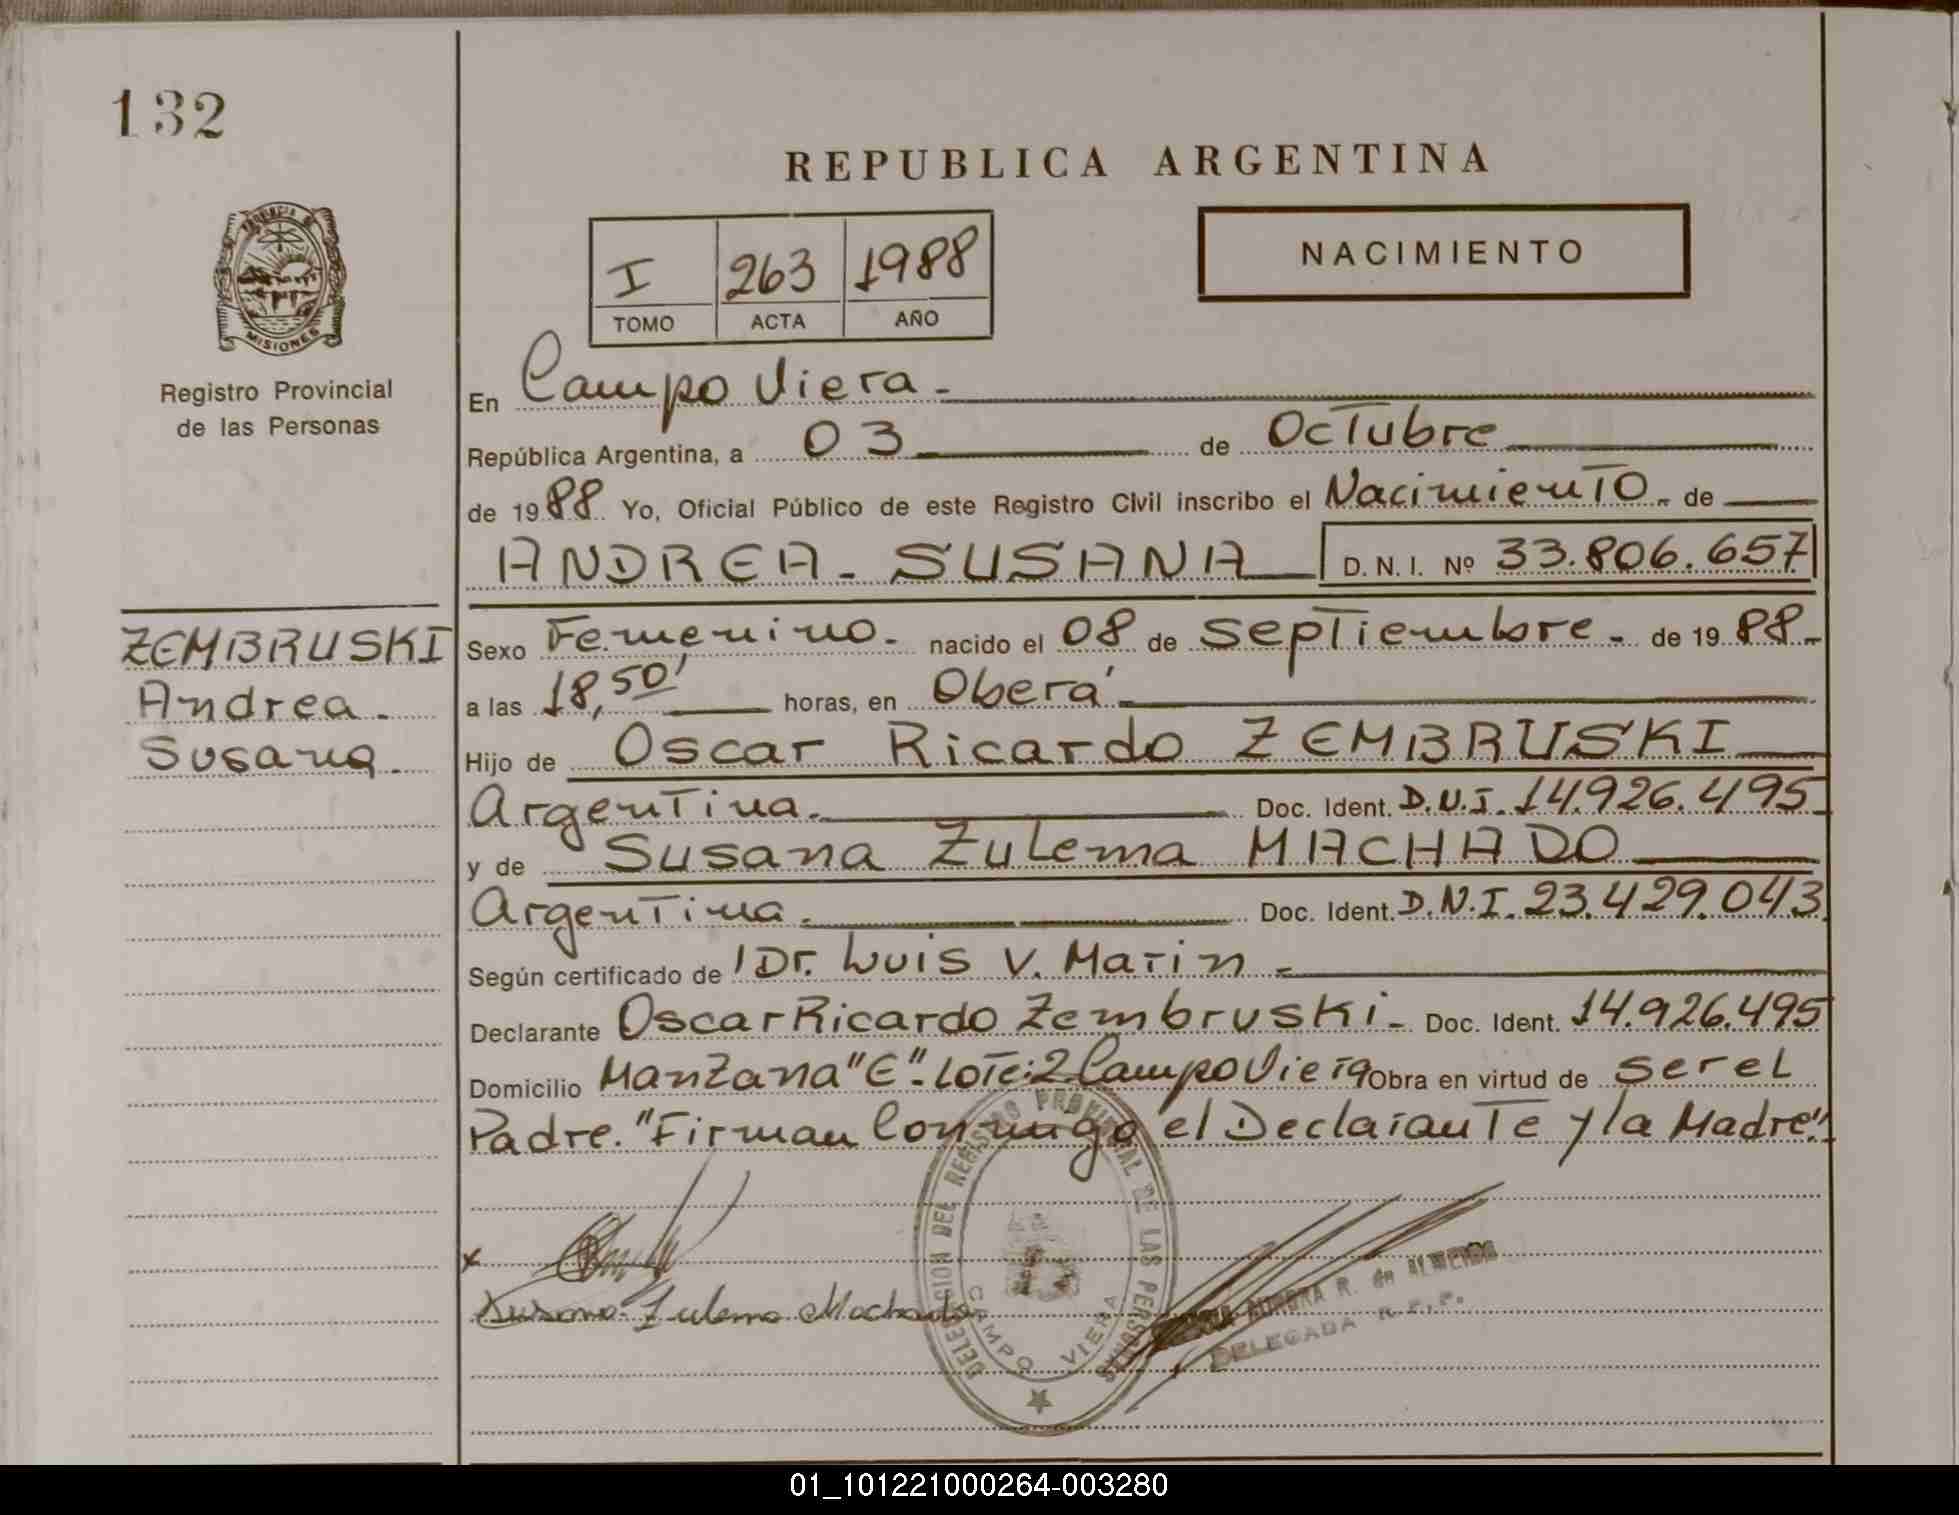 132
REPUBLICA ARGENTINA
NACIMIENTO
I 263 1988
TOMO ACTA AÑO
PROVINCIA DE
MISIONES
Registro Provincial
de las Personas
En Campo Viera.
República Argentina, a 03 de Octubre
de 1988 Yo, Oficial Público de este Registro Civil inscribo el Nacimiento.. de
ANDREA - SUSANA D. N. I. Nº 33.806.657
ZEMBRUSKI
Andrea.
Susana.
Sexo Femenino. nacido el 08 de septiembre. de 1988.
a las 18,50' horas, en Oberá
Hijo de Oscar Ricardo ZEMBRUSKI
Argentina. Doc. Ident. D.N.I. 14.926.495
y de Susana Zulema MACHADO
Argentina. Doc. Ident. D.N.I. 23.429.043
Según certificado de Dr. Luis V. Marin.
Declarante Oscar Ricardo Zembruski. Doc. Ident. 14.926.495
Domicilio Manzana "E". Lote:2 Campo Viera Obra en virtud de ser el
Padre. "Firman Conmigo el Declarante y la Madre".
DELEGACION DEL REGISTRO PROVINCIAL DE LAS PERSONAS
CAMPO VIERA
x
Susana Zulema Machado
AURORA R. de ALMEIDA
DELEGADA R.P.P.
01_101221000264-003280